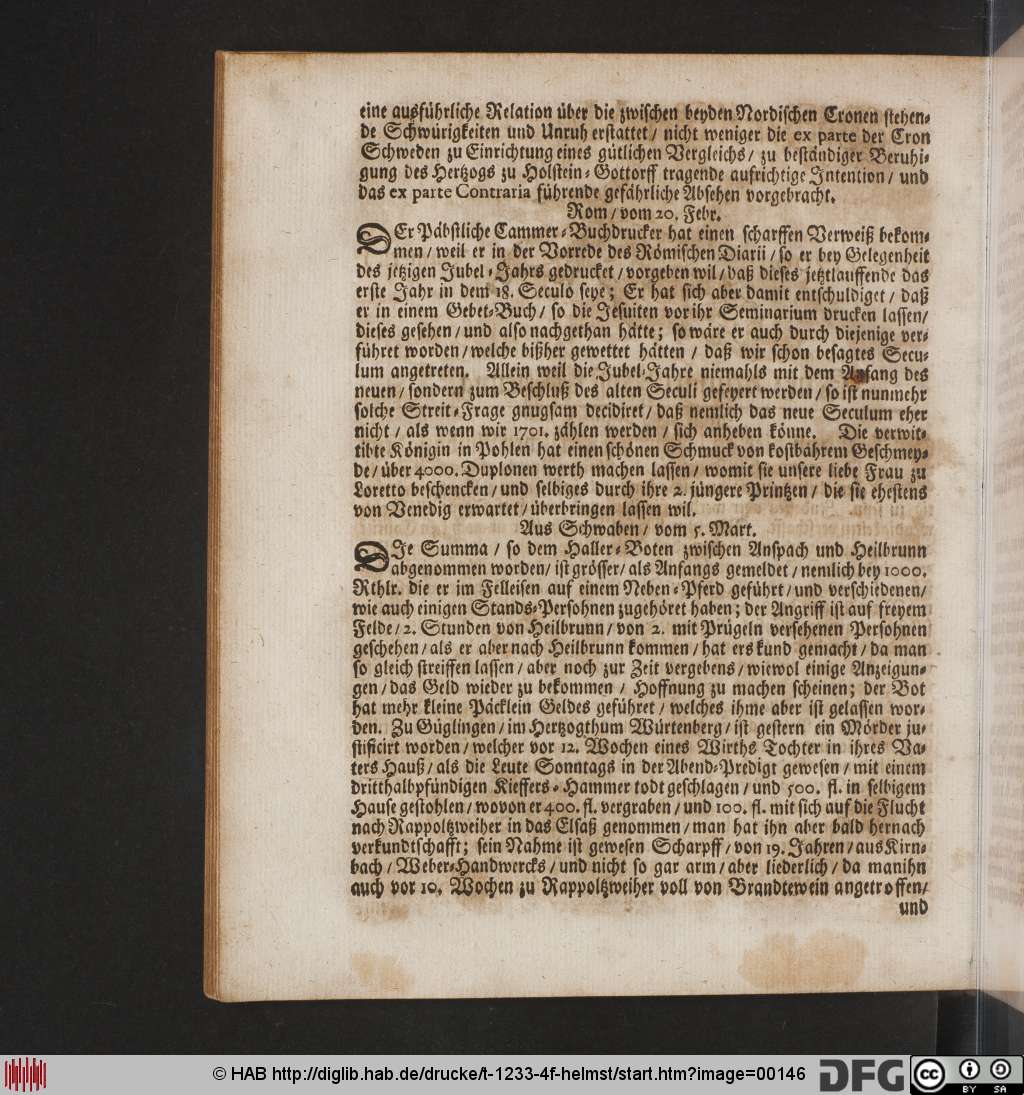 eine ausführliche Relation über die zwischen beyden Nordischen Cronen stehen-
de Schwürigkeiten und Unruh erstattet / nicht weniger die ex parte der Cron
Schweden zu Einrichtung eines gütlichen Vergleichs / zu beständiger Beruhi-
gung des Hertzogs zu Holstein-Gottorff tragende aufrichtige Intention / und
das ex parte Contraria führende gefährliche Absehen vorgebracht.
Rom / vom 20. Febr.
DEr Päbstliche Cammer-Buchdrucker hat einen scharffen Verweiß bekom-
men / weil er in der Vorrede des Römischen Diarii / so er bey Gelegenheit
des jetzigen Jubel-Jahrs gedrucket / vorgeben wil / daß dieses jetztlauffende das
erste Jahr in dem 18. Seculo seye; Er hat sich aber damit entschuldiget / daß
er in einem Gebet-Buch / so die Jesuiten vor ihr Seminarium drucken lassen /
dieses gesehen / und also nachgethan hätte; so wäre er auch durch diejenige ver-
führet worden / welche bißher gewettet hätten / daß wir schon besagtes Secu-
lum angetreten. Allein weil die Jubel-Jahre niemahls mit dem Anfang des
neuen / sondern zum Beschluß des alten Seculi gefeyert werden / so ist nunmehr
solche Streit-Frage gnugsam decidiret / daß nemlich das neue Seculum eher
nicht / als wenn wir 1701. zählen werden / sich anheben könne. Die verwit-
tibte Königin in Pohlen hat einen schönen Schmuck von kostbahrem Geschmey-
de / über 4000. Duplonen werth machen lassen / womit sie unsere liebe Frau zu
Loretto beschencken / und selbiges durch ihre 2. jüngere Printzen / die sie ehestens
von Venedig erwartet / überbringen lassen wil.
Aus Schwaben / vom 5. Mart.
DIe Summa / so dem Haller-Boten zwischen Anspach und Heilbrunn
abgenommen worden / ist grösser / als Anfangs gemeldet / nemlich bey 1000.
Rthlr. die er im Felleisen auf einem Neben-Pferd geführt / und verschiedenen /
wie auch einigen Stands-Persohnen zugehöret haben; der Angriff ist auf freyem
Felde / 2. Stunden von Heilbrunn / von 2. mit Prügeln versehenen Persohnen
geschehen / als er aber nach Heilbrunn kommen / hat ers kund gemacht / da man
so gleich streiffen lassen / aber noch zur Zeit vergebens / wiewol einige Anzeigun-
gen / das Geld wieder zu bekommen / Hoffnung zu machen scheinen; der Bot
hat mehr kleine Päcklein Geldes geführet / welches ihme aber ist gelassen wor-
den. Zu Güglingen / im Hertzogthum Würtenberg / ist gestern ein Mörder ju-
stificirt worden / welcher vor 12. Wochen eines Wirths Tochter in ihres Va-
ters Hauß / als die Leute Sonntags in der Abend-Predigt gewesen / mit einem
dritthalbpfündigen Kieffers-Hammer todt geschlagen / und 500. fl. in selbigem
Hause gestohlen / wovon er 400. fl. vergraben / und 100. fl. mit sich auf die Flucht
nach Rappoltzweiher in das Elsaß genommen / man hat ihn aber bald hernach
verkundtschafft; sein Nahme ist gewesen Scharpff / von 19. Jahren / aus Kirn-
bach / Weber-Handwercks / und nicht so gar arm / aber liederlich / da man ihn
auch vor 10. Wochen zu Rappoltzweiher voll von Brandtewein angetroffen /
und
© HAB http://diglib.hab.de/drucke/t-1233-4f-helmst/start.htm?image=00146
DFG
cc
BY SA